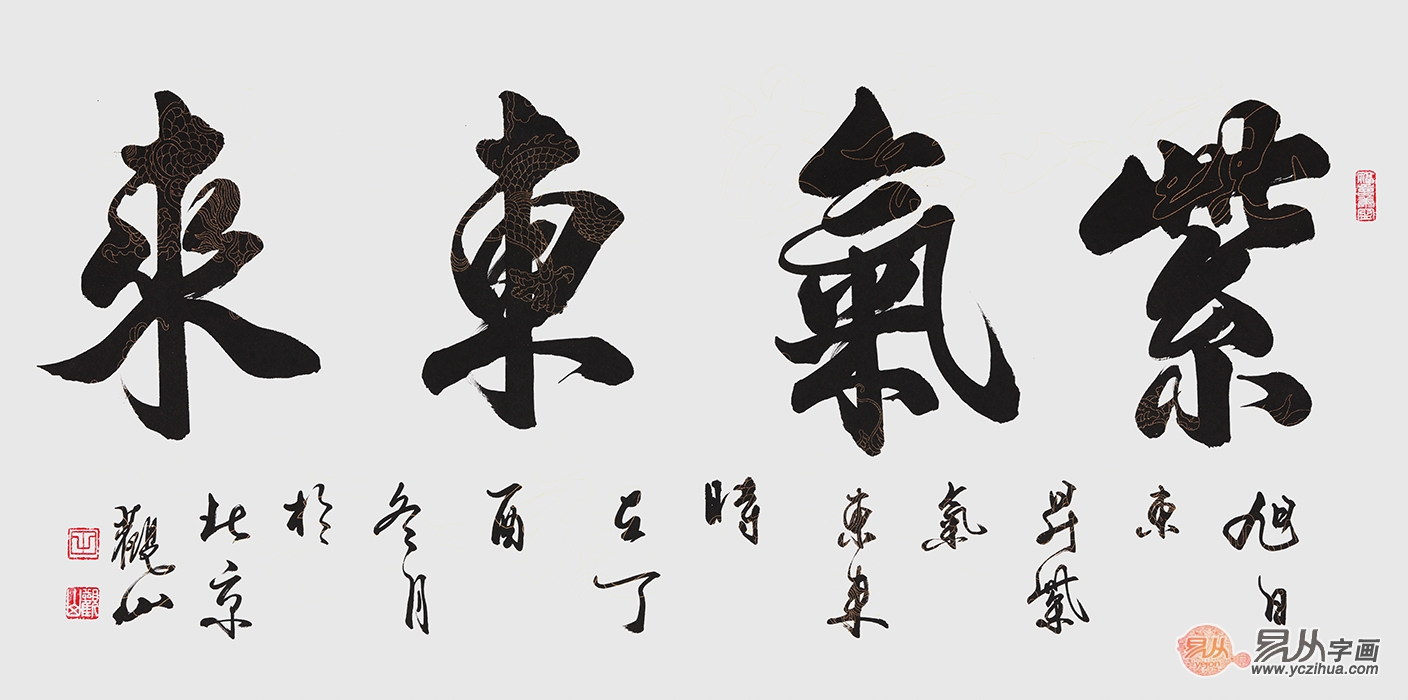 紫氣東來
旭日
東
昇紫
氣
東來
時
在丁
酉
冬月
於
北京
觀山
易从
yejon
易从字画
www.yczihua.com